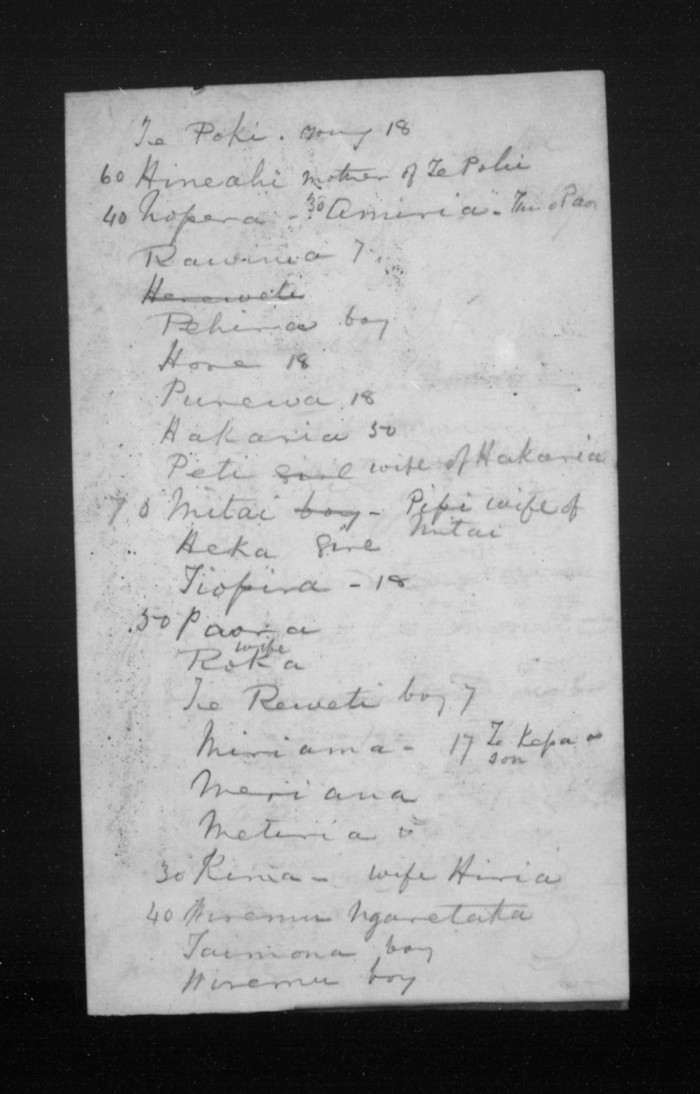 Te Poki. young 18
60 Hineahi mother of Te Poki
40 Nopera - 30 Amiria -
Rawinia 7
Hereweti
Pehira boy
Hone 18
Purewa 18
Hakaria 50
Peti girl wife of Hakaria
70 Mitai boy - Pipi wife of Mitai
Heka Girl
Tiopira - 18
50 Paora
wife
Roka
Te Reweti boy 7
Miriama - 17 Te Kepa
son
Meriana
Meturia
30 Rima - wife Hiria
40 Wiremu Ngaretaka
Taimona boy
Wiremu boy